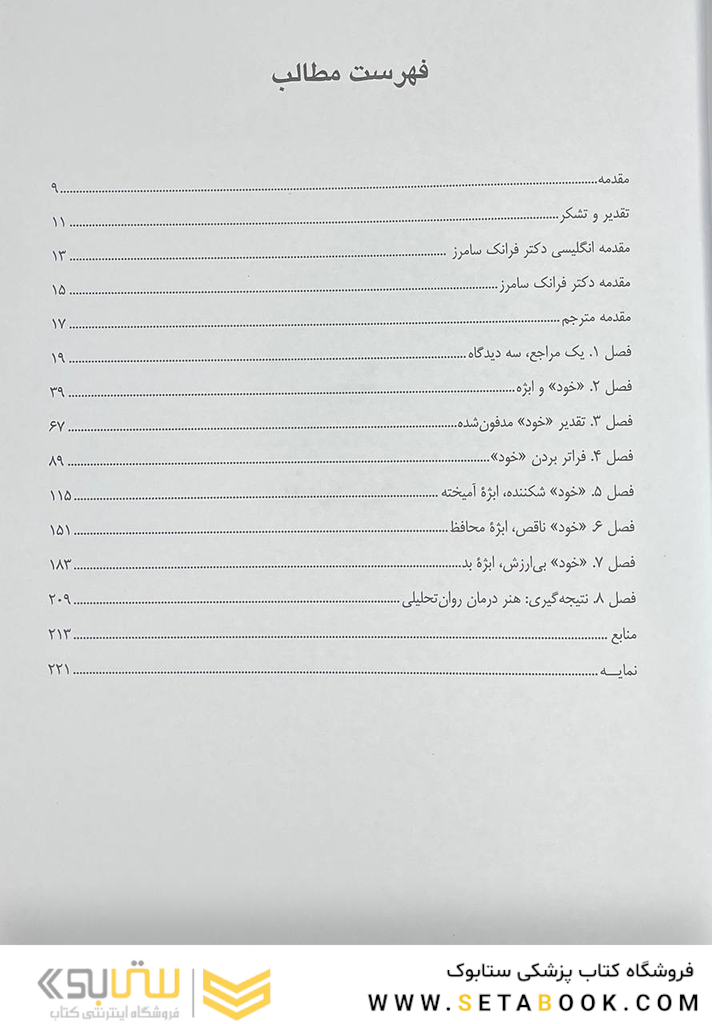 فهرست مطالب
مقدمه ........ ۹
تقدیر و تشکر ........ ۱۱
مقدمه انگلیسی دکتر فرانک سامرز ........ ۱۳
مقدمه دکتر فرانک سامرز ........ ۱۵
مقدمه مترجم ........ ۱۷
فصل ۱. یک مراجع، سه دیدگاه ........ ۱۹
فصل ۲. «خود» و ابژه ........ ۳۹
فصل ۳. تقدیر «خود» مدفون‌شده ........ ۶۷
فصل ۴. فراتر بردن «خود» ........ ۸۹
فصل ۵. «خود» شکننده، ابژهٔ آمیخته ........ ۱۱۵
فصل ۶. «خود» ناقص، ابژهٔ محافظ ........ ۱۵۱
فصل ۷. «خود» بی‌ارزش، ابژهٔ بد ........ ۱۸۳
فصل ۸. نتیجه‌گیری: هنر درمان روان‌تحلیلی ........ ۲۰۹
منابع ........ ۲۱۳
نمایـــه ........ ۲۲۱
فروشگاه کتاب پزشکی ستابوک
WWW.SETABOOK.COM
ستابوک
فروشگاه اینترنتی کتاب